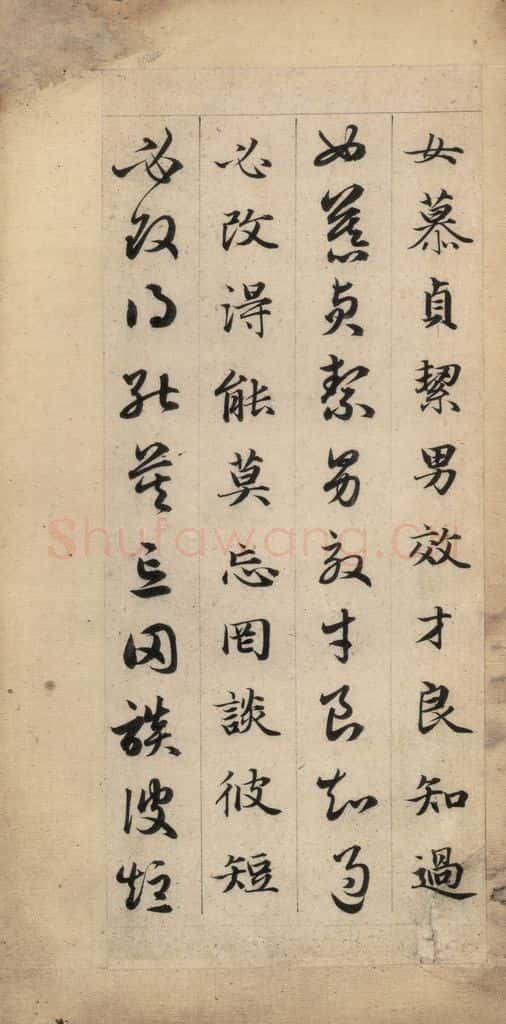 女慕貞絜男效才良知過
女慕貞絜男效才良知過
必改得能莫忘罔談彼短
必改得能莫忘罔談彼短
Shufawang.cn